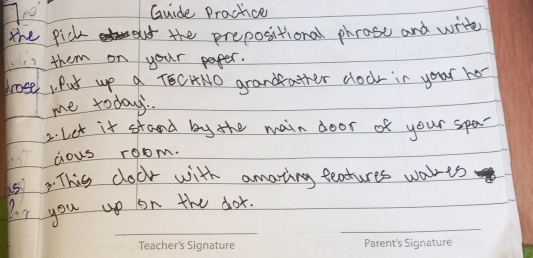 Guide Practice
the Pick out the prepositional phrase and write
them on your paper.
1. Put up a TECHNO grandfather clock in your ho-
me today!.
2. Let it stand by the main door of your spa-
cious room.
3. This clock with amazing features wakes
you up on the dot.
Teacher's Signature
Parent's Signature